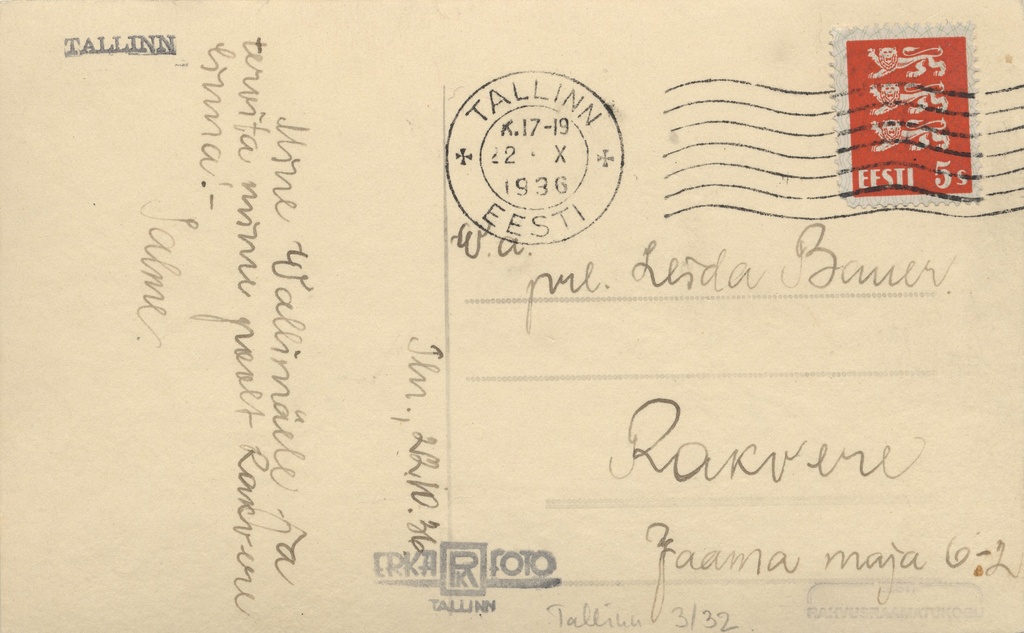 TALLINN
Tln., 22.10.36
Mine Wallimäele ja
tervita minu poolt Rakvere
linna! -
Salme.
TALLINN
K.17-19
22 · X
1936
EESTI
EESTI 5s
W.a.
prl. Leida Bauer.
Rakvere
Jaama maja 6-2
ERKA RPK FOTO
TALLINN
Tallinn 3/32.
RAHVUSRAAMATUKOGU